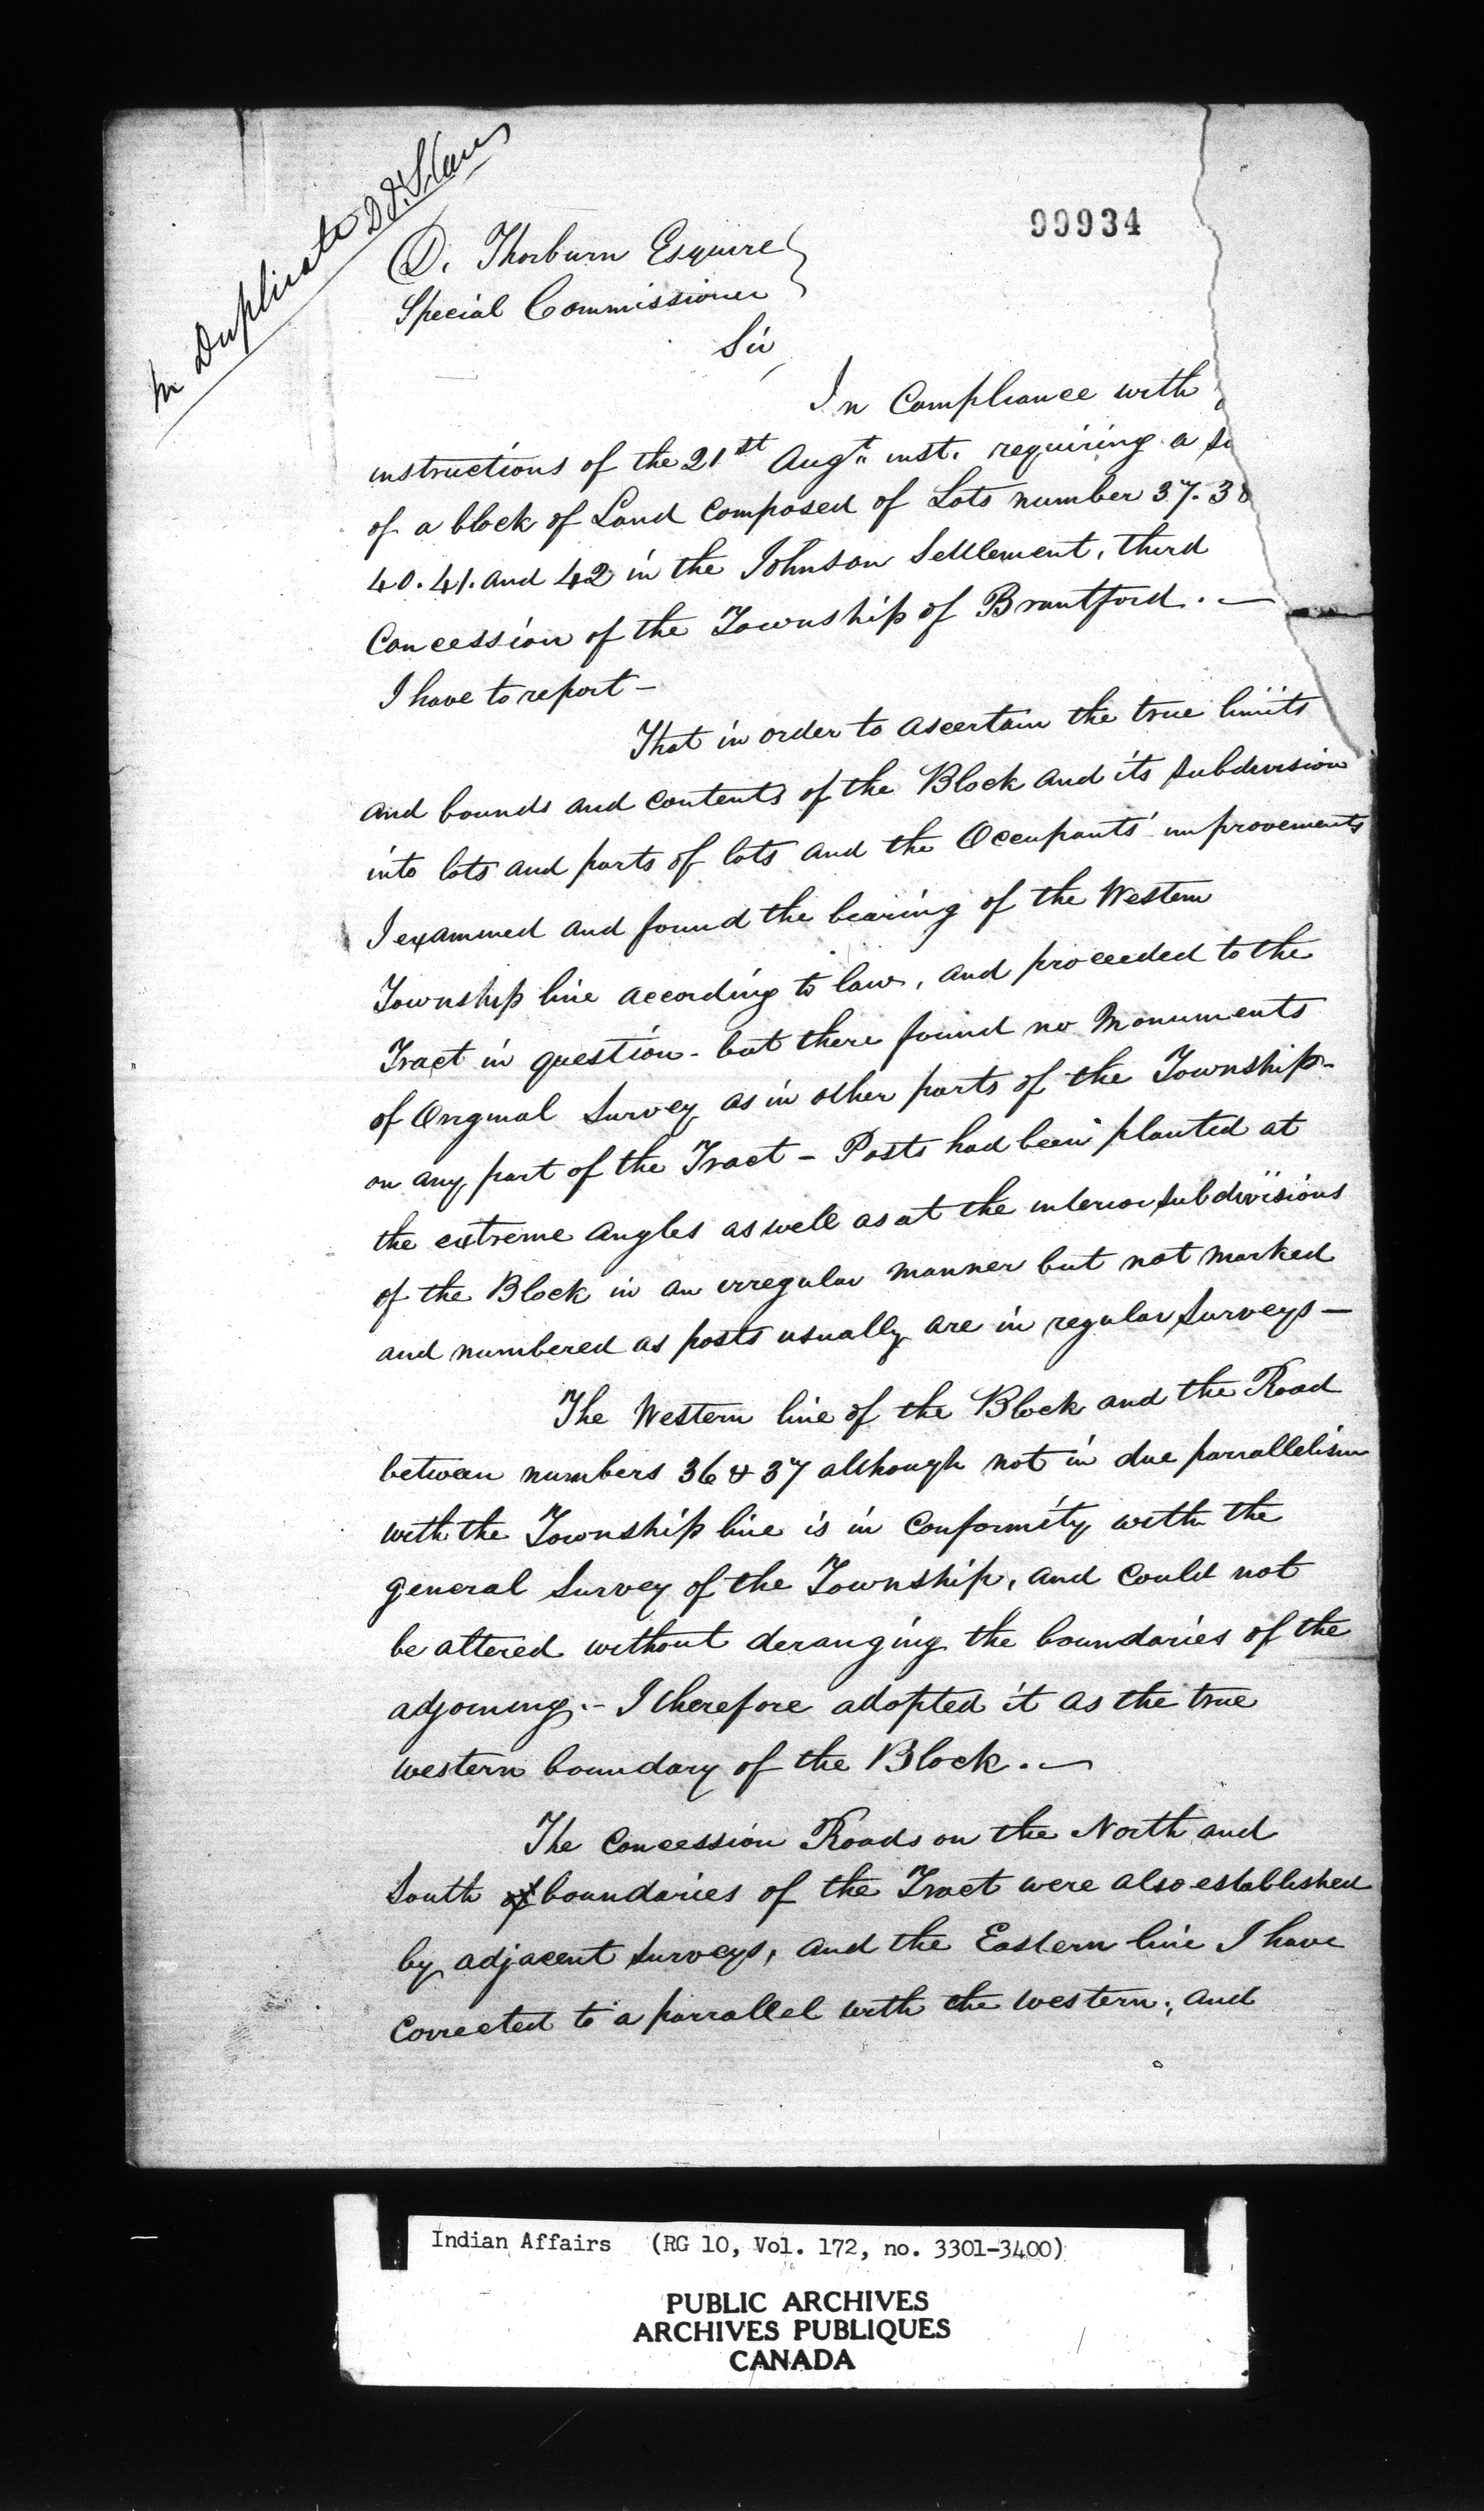 In Duplicate
99934
D. Thorburn Esquire
Special Commissioner
Sir,
In Compliance with
instructions of the 21st Augt. inst. requiring a
of a block of Land Composed of Lots number 37. 38
40. 41. and 42 in the Johnson Settlement, third
Concession of the Township of Brantford. —
I have to report —
That in order to ascertain the true limits
and bounds and contents of the Block and its subdivision
into lots and parts of lots and the Occupants' improvements
I examined and found the bearing of the Western
Township line according to law, and proceeded to the
Tract in question - but there found no Monuments
of Original Survey as in other parts of the Township -
on any part of the Tract - Posts had been planted at
the extreme Angles as well as at the interior subdivisions
of the Block in an irregular manner but not marked
and numbered as posts usually are in regular surveys —
The Western line of the Block and the Road
between numbers 36 & 37 although not in due parrallelism
with the Township line is in Conformity with the
general Survey of the Township, and Could not
be altered without deranging the boundaries of the
adjoining. - I therefore adopted it as the true
western boundary of the Block. —
The Concession Roads on the North and
South of boundaries of the Tract were also established
by adjacent surveys, and the Eastern line I have
Corrected to a parrallel with the western; and
Indian Affairs (RG 10, Vol. 172, no. 3301-3400)
PUBLIC ARCHIVES
ARCHIVES PUBLIQUES
CANADA